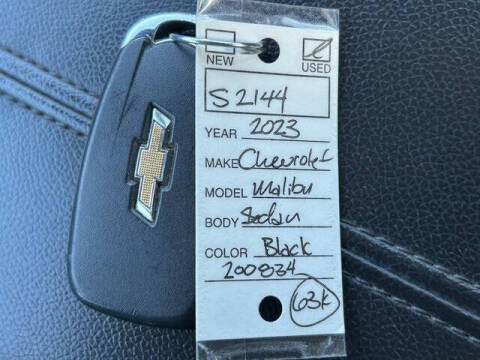 NEW USED
S2144
YEAR 2023
MAKE Chevrolet
MODEL Malibu
BODY Sedan
COLOR Black
200834
63K